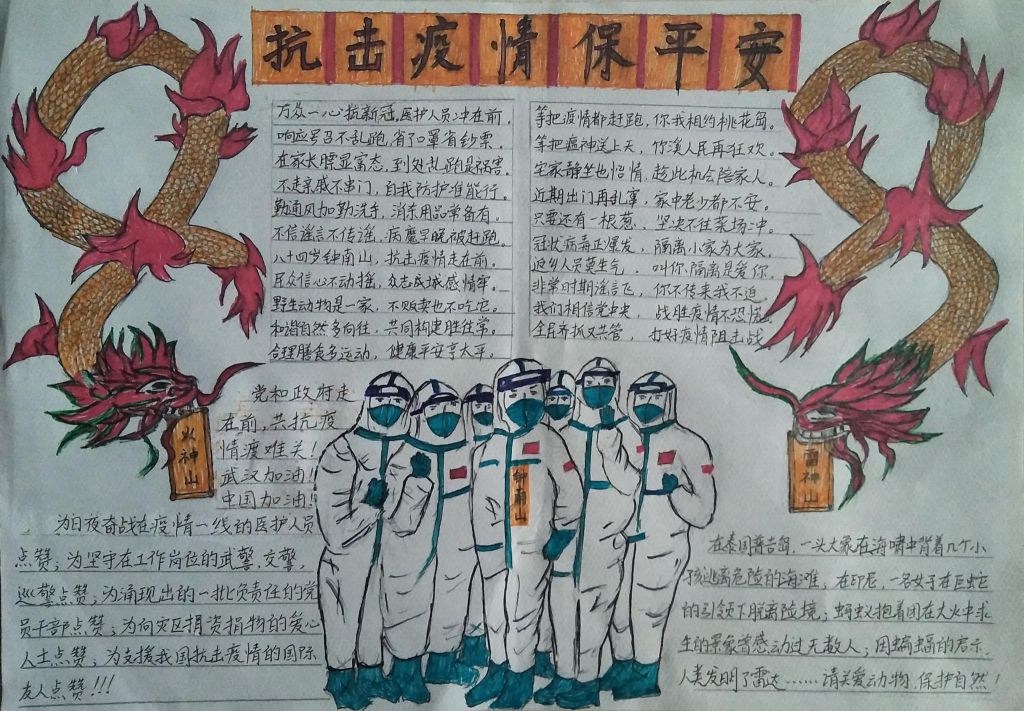 抗击疫情保平安
万众一心抗新冠,医护人员冲在前,
响应号召不乱跑,省了口罩省钞票.
在家长膘显富态,到处乱跑是祸害.
不走亲戚不串门,自我防护准能行.
勤通风加勤洗手,消杀用品常备有.
不信谣言不传谣,病魔早晚被赶跑.
八十四岁钟南山,抗击疫情走在前.
民众信心不动摇,众志成城感情牢.
野生动物是一家,不贩卖也不吃它.
和谐自然多向往,共同构建胜往常.
合理膳食多运动,健康平安享太平.
等把疫情都赶跑,你我相约桃花岛.
等把瘟神送上天,你溪人民再狂欢.
宅家静坐也怡情,趁此机会陪家人.
近期出门再乱窜,家中老少都不安.
只要还有一根葱,坚决不往菜场冲.
冠状病毒正爆发,隔离小家为大家.
返乡人员莫生气,叫你隔离是爱你.
非常时期谣言飞,你不传来我不追.
我们相信党中央,战胜疫情不恐慌.
全民齐抓又共管,打好疫情阻击战
党和政府走
在前,共抗疫
情渡难关!
武汉加油!
中国加油!
火神山
钟南山
雷神山
为日夜奋战在疫情一线的医护人员
点赞;为坚守在工作岗位的武警,交警,
巡警点赞;为涌现出的一批负责任的党
员干部点赞;为向灾区捐资捐物的爱心
人士点赞;为支援我国抗击疫情的国际
友人点赞!!!
在泰国普吉岛,一头大象在海啸中背着几个小
孩逃离危险的海滩,在印尼,一名女子在巨蛇
的引领下脱离险境;蚂蚁抱着团在大火中求
生的景象曾感动过无数人;因蝙蝠的启示,
人类发明了雷达……请关爱动物,保护自然!